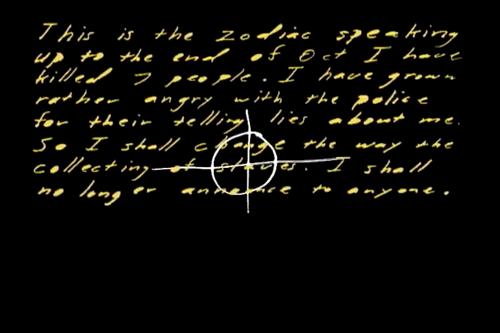 This is the zodiac speaking
up to the end of Oct I have
killed 7 people. I have grown
rather angry with the police
for their telling lies about me.
So I shall change the way the
collecting of slaves. I shall
no longer announce to anyone.